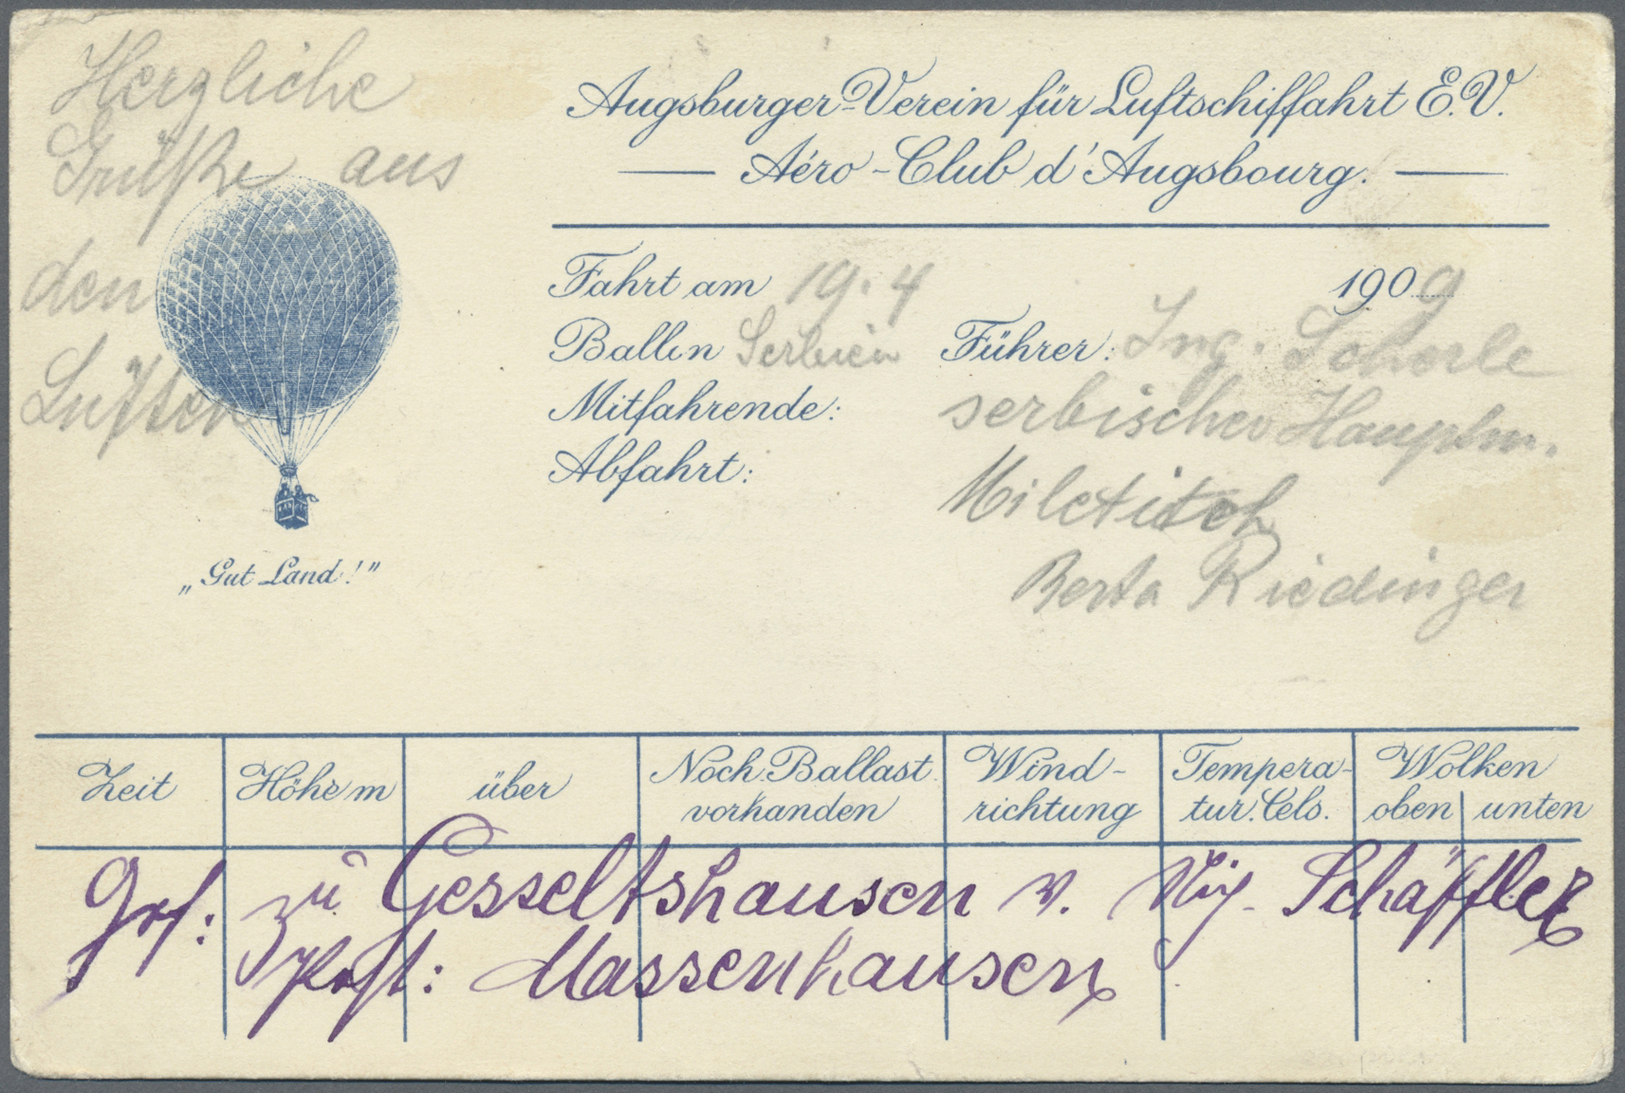 Herzliche
Grüße aus
den
Lüften
„Gut Land!”
Augsburger-Verein für Luftschiffahrt E.V.
Aéro-Club d'Augsbourg.
Fahrt am 19.4 1909
Ballon Serbien Führer: Ing. Scherle
Mitfahrende: serbischer Hauptm.
Abfahrt: Miletitsch
Berta Riedinger
Zeit Höhe m über Noch Ballast vorhanden Wind-richtung Tempera-tur. Cels. Wolken oben unten
Gef: zu Gesseltshausen v. Schäffler
Post: Massenhausen